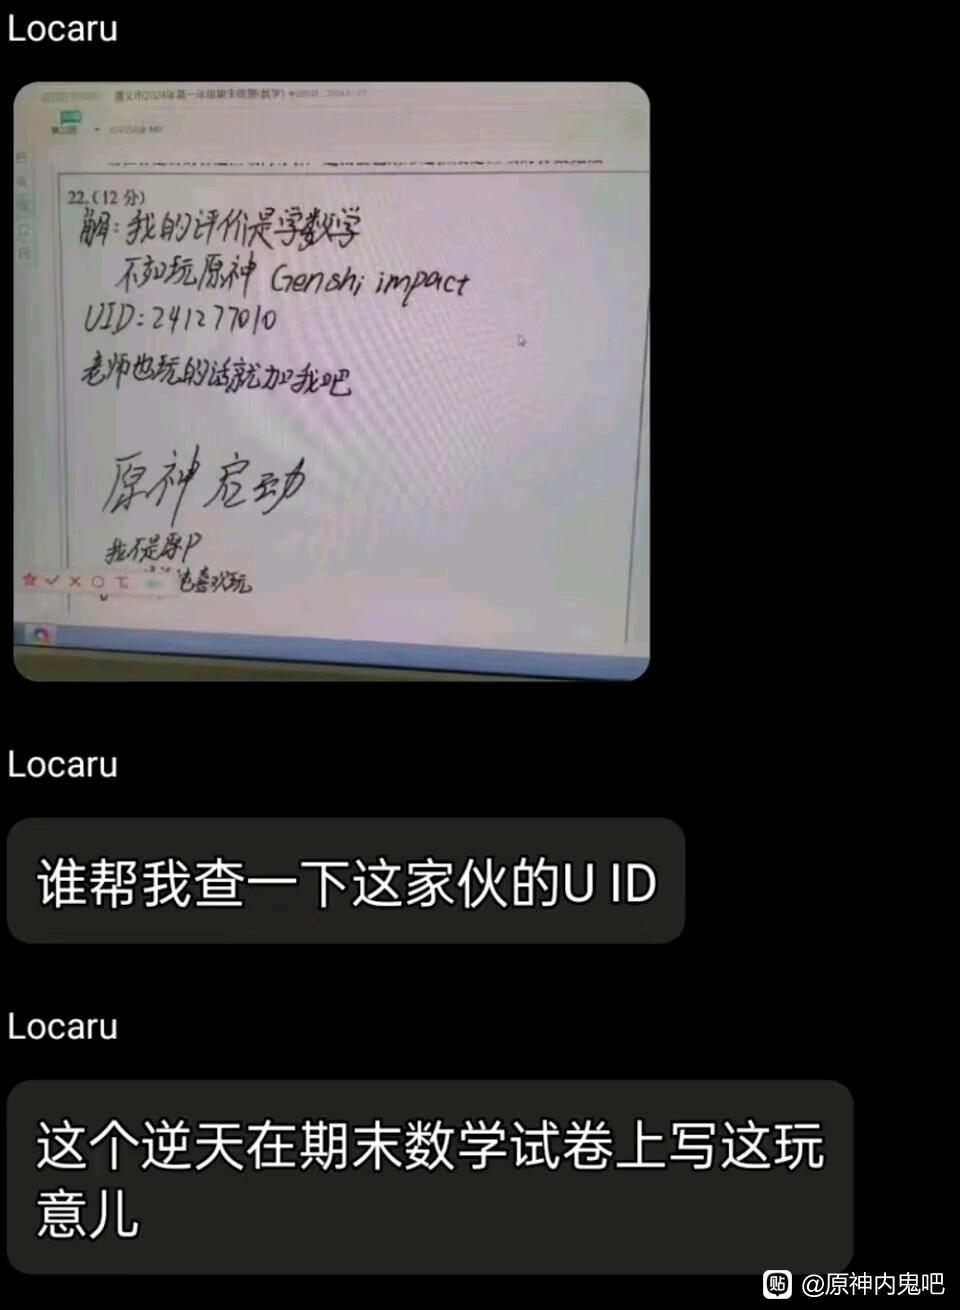 Locaru
遵义市2024年
22.(12分)
解:我的评价是学数学
不如玩原神 Genshi impact
UID:241277010
老师也玩的话就加我吧
原神 启动
我不是原P
也喜欢玩
Locaru
谁帮我查一下这家伙的U ID
Locaru
这个逆天在期末数学试卷上写这玩
意儿
贴 @原神内鬼吧